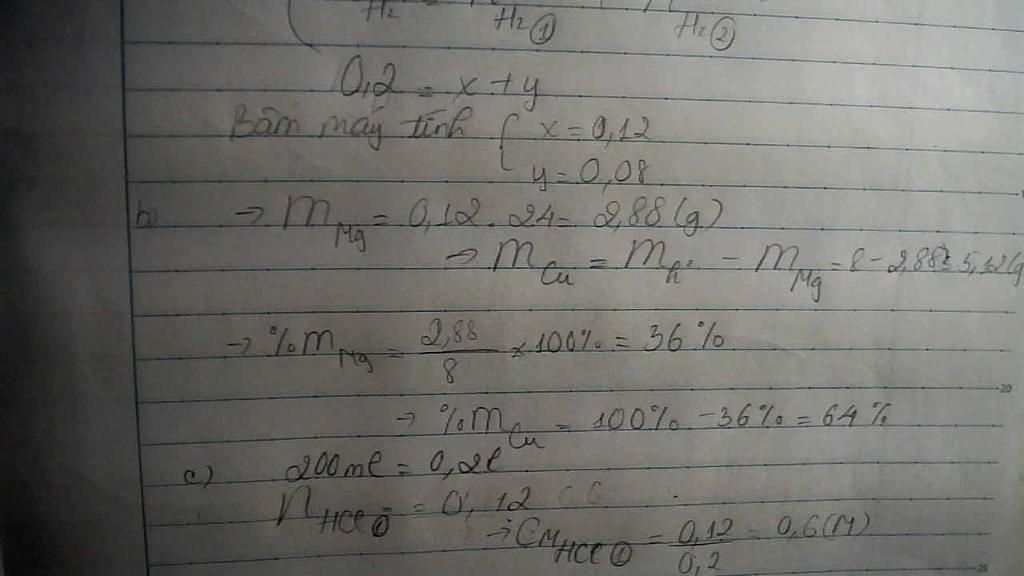 H₂ H₂① H₂②
0,2 = x + y
Bấm máy tính { x = 0,12
y = 0,08
b) → m_Mg = 0,12 . 24 = 2,88 (g)
→ m_Cu = m_h² - m_Mg = 8 - 2,88 = 5,12 (g
→ %m_Mg = 2,88/8 × 100% = 36%
→ %m_Cu = 100% - 36% = 64%
c) 200ml = 0,2l
n_HCl① = 0,12
→ CM_HCl① = 0,12/0,2 = 0,6 (M)